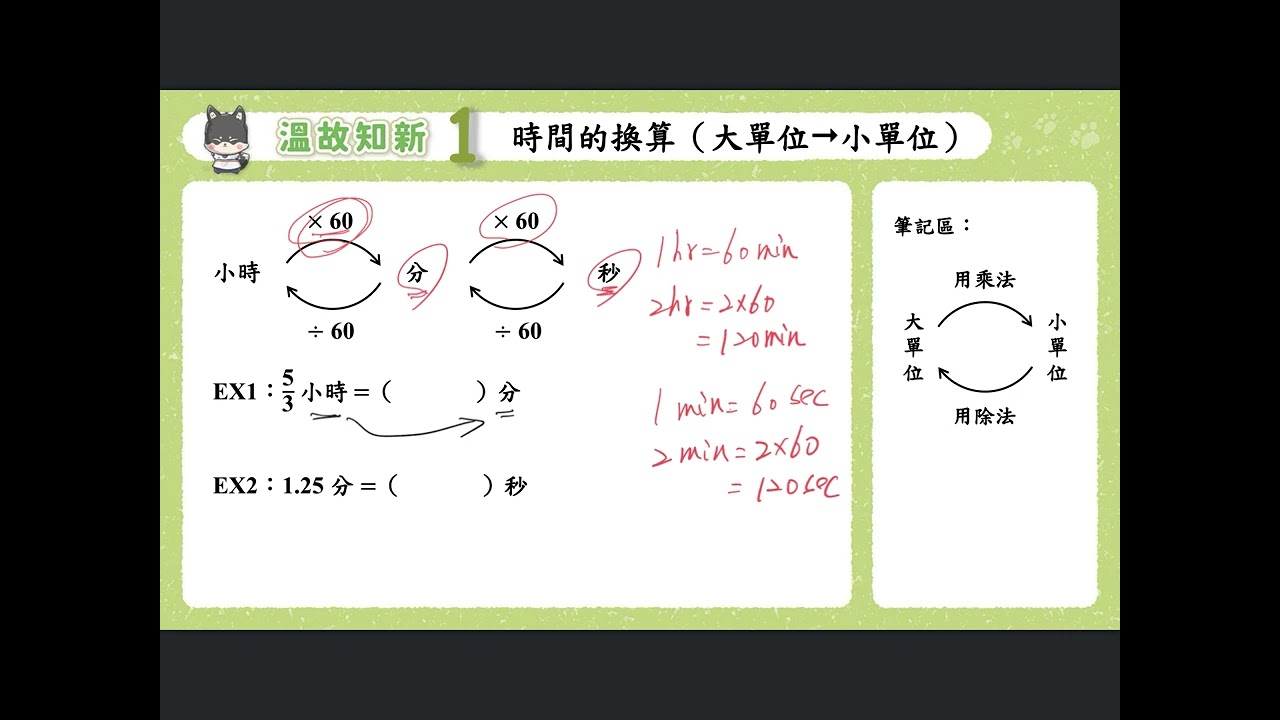 溫故知新 1 時間的換算（大單位→小單位）
× 60 × 60
小時 分 秒
÷ 60 ÷ 60
EX1：5/3 小時＝（ ）分
EX2：1.25 分＝（ ）秒
1 hr = 60 min
2 hr = 2×60
= 120 min
1 min = 60 sec
2 min = 2×60
= 120 sec
筆記區：
用乘法
大單位 小單位
用除法